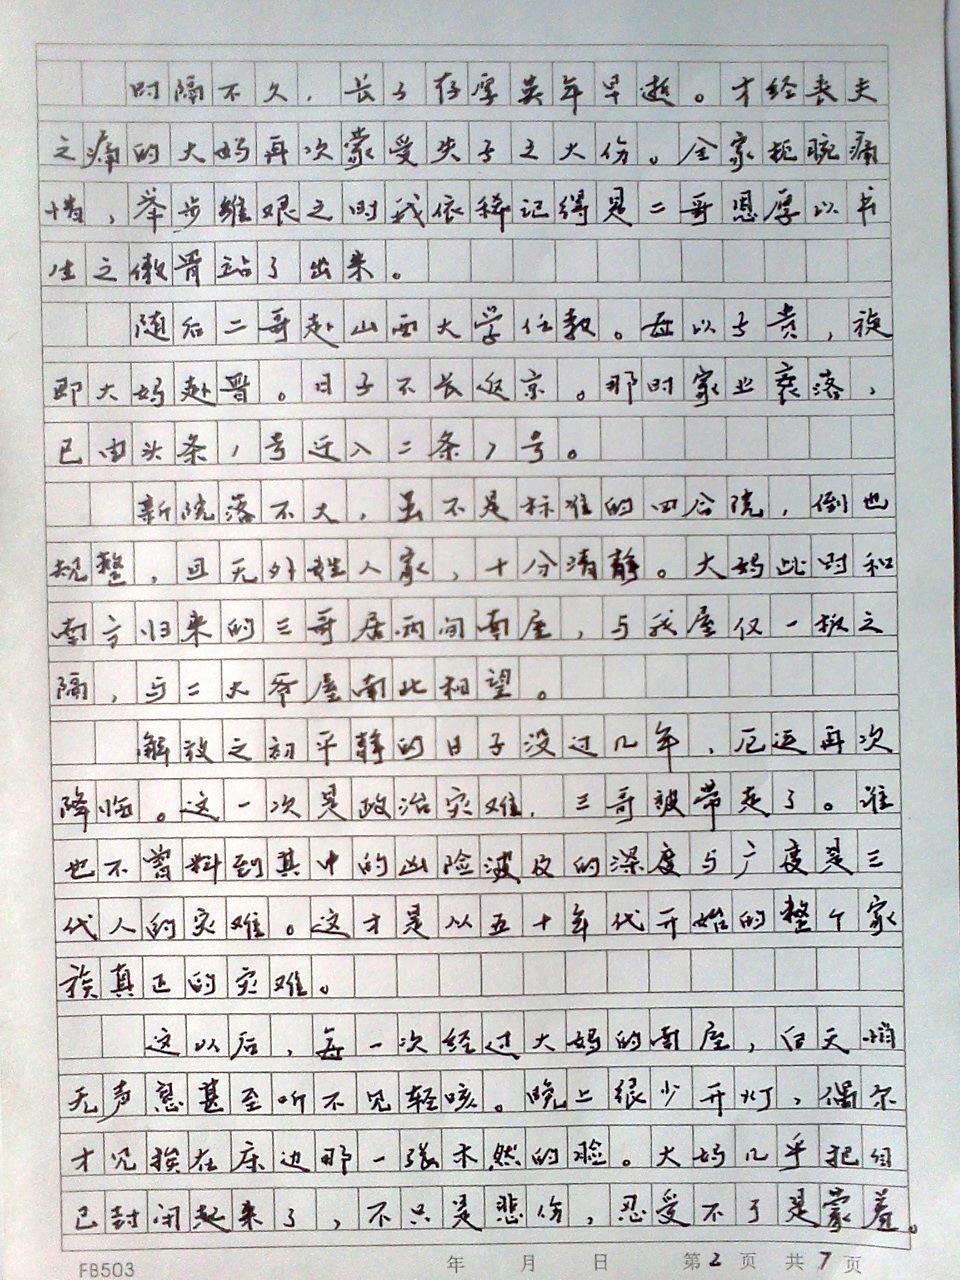 时隔不久，长子存厚英年早逝。才经丧夫
之痛的大妈再次蒙受失子之大伤。全家扼腕痛
惜，举步维艰之时我依稀记得是二哥恩厚以书
生之傲骨站了出来。
随后二哥赴山西大学任教。母以子贵，旋
即大妈赴晋。日子不长返京。那时家业衰落，
已由头条1号迁入二条7号。
新院落不大，虽不是标准的四合院，倒也
规整，且无外姓人家，十分清静。大妈此时和
南方归来的三哥居两间南屋，与我屋仅一板之
隔，与二大爷屋南北相望。
解放之初平静的日子没过几年，厄运再次
降临。这一次是政治灾难，三哥被带走了。谁
也不曾料到其中的凶险波及的深度与广度是三
代人的灾难。这才是从五十年代开始的整个家
族真正的灾难。
这以后，每一次经过大妈的南屋，白天悄
无声息甚至听不见轻咳。晚上很少开灯，偶尔
才见挨在床边那一张木然的脸。大妈几乎把自
己封闭起来了，不只是悲伤，忍受不了是蒙羞。
FB503 年 月 日 第2页 共7页